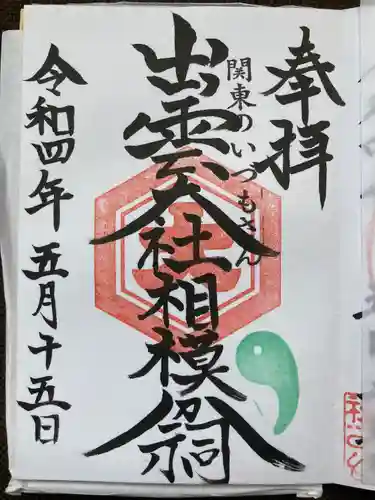 奉拝
関東のいづもさん
出雲大社相模分祠
令和四年五月十五日